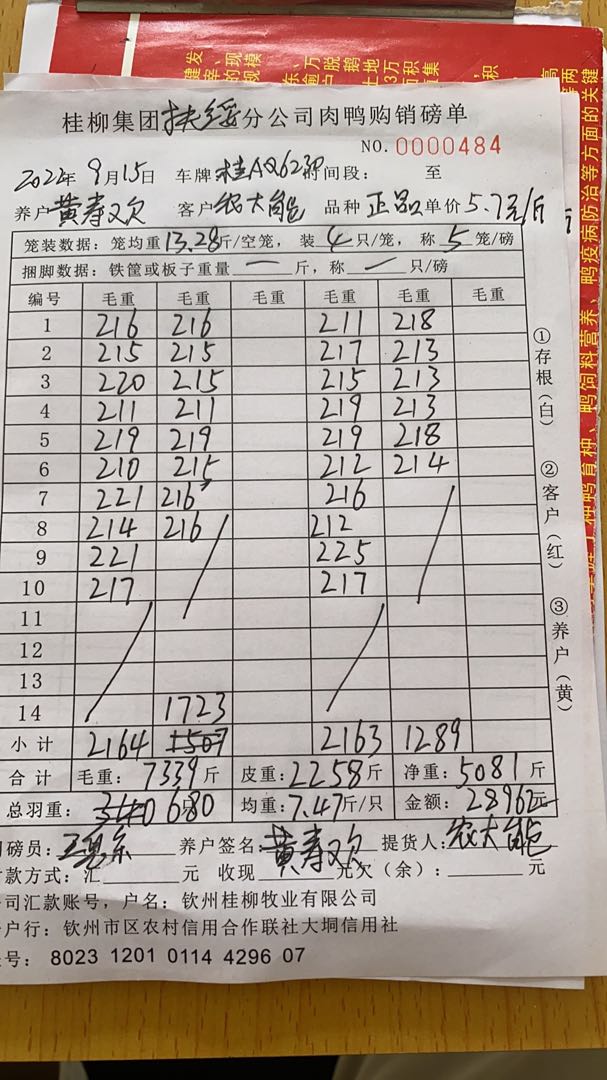 桂柳集团扶绥分公司肉鸭购销磅单
NO.0000484
2022年9月15日 车牌 时间段: 至
养户黄寿欢 客户农大能 品种正品 单价5.7元/斤
笼装数据:笼均重13.28斤/空笼,装4只/笼,称5笼/磅
捆脚数据:铁筐或板子重量一斤,称一只/磅
编号 毛重 毛重 毛重 毛重 毛重 毛重
1 216 216 211 218
2 215 215 217 213
3 220 215 215 213
4 211 211 219 213
5 219 219 219 218
6 210 215 212 214
7 221 216 216
8 214 216 212
9 221 225
10 217 217
11
12
13
14 1723
小计 2164 1507 2163 1289
合计 毛重:7339斤 皮重:2258斤 净重:5081斤
总羽重:340 680 均重:7.47斤/只 金额:28962元
磅员: 养户签名:黄寿欢 提货人:农大能
付款方式:汇 元 收现 元欠(余): 元
司汇款账号,户名:钦州桂柳牧业有限公司
户行:钦州市区农村信用合作联社大垌信用社
号: 8023 1201 0114 4296 07
①存根(白) ②客户(红) ③养户(黄)